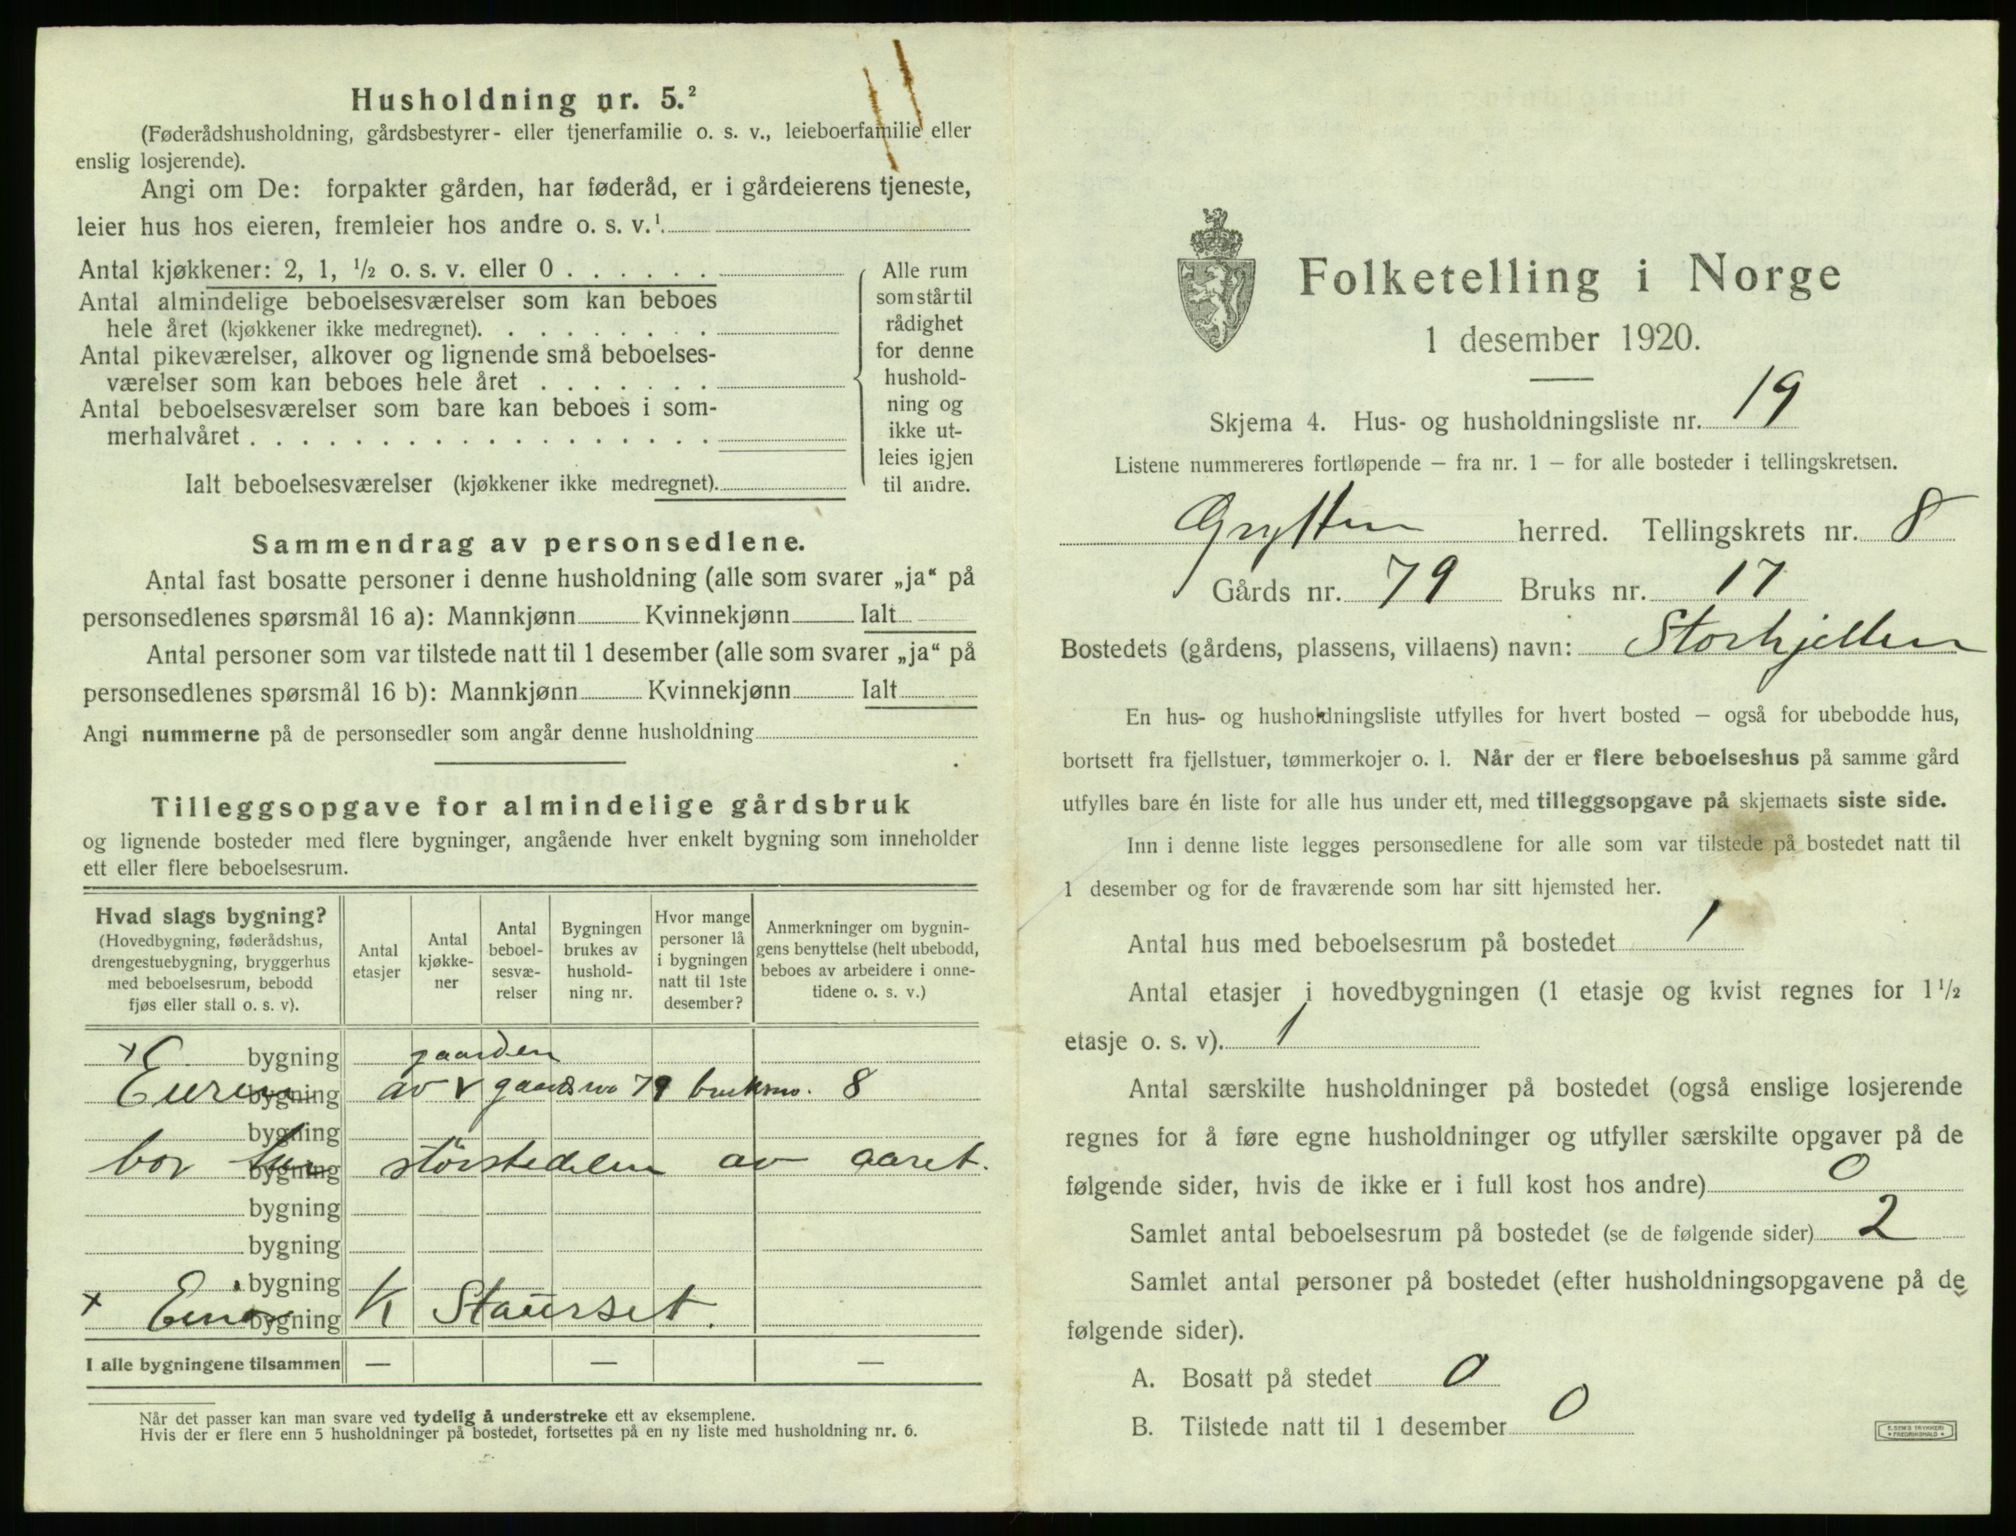 Husholdning nr. 5.²
(Føderådshusholdning, gårdsbestyrer- eller tjenerfamilie o. s. v., leieboerfamilie eller
enslig losjerende).
Angi om De: forpakter gården, har føderåd, er i gårdeierens tjeneste,
leier hus hos eieren, fremleier hos andre o. s. v.¹
Antal kjøkkener: 2, 1, ½ o. s. v. eller 0
Antal almindelige beboelsesværelser som kan beboes
hele året (kjøkkener ikke medregnet).
Antal pikeværelser, alkover og lignende små beboelses-
værelser som kan beboes hele året
Antal beboelsesværelser som bare kan beboes i som-
merhalvåret
Ialt beboelsesværelser (kjøkkener ikke medregnet).
Alle rum
som står til
rådighet
for denne
hushold-
ning og
ikke ut-
leies igjen
til andre.
Sammendrag av personsedlene.
Antal fast bosatte personer i denne husholdning (alle som svarer „ja“ på
personsedlenes spørsmål 16 a): Mannkjønn Kvinnekjønn Ialt
Antal personer som var tilstede natt til 1 desember (alle som svarer „ja“ på
personsedlenes spørsmål 16 b): Mannkjønn Kvinnekjønn Ialt
Angi nummerne på de personsedler som angår denne husholdning
Tilleggsopgave for almindelige gårdsbruk
og lignende bosteder med flere bygninger, angående hver enkelt bygning som inneholder
ett eller flere beboelsesrum.
Hvad slags bygning?
(Hovedbygning, føderådshus,
drengestuebygning, bryggerhus
med beboelsesrum, bebodd
fjøs eller stall o. s. v).
Antal
etasjer
Antal
kjøkke-
ner
Antal
beboel-
sesvæ-
relser
Bygningen
brukes av
hushold-
ning nr.
Hvor mange
personer lå
i bygningen
natt til 1ste
desember?
Anmerkninger om bygnin-
gens benyttelse (helt ubebodd,
beboes av arbeidere i onne-
tidene o. s. v.)
bygning gaarden
bygning av gaardsno 79 bruksno. 8
bygning
bor bygning størstedelen av aaret.
bygning
bygning
bygning
x bygning K Staurset.
I alle bygningene tilsammen — — —
Når det passer kan man svare ved tydelig å understreke ett av eksemplene.
Hvis der er flere enn 5 husholdninger på bostedet, fortsettes på en ny liste med husholdning nr. 6.
Folketelling i Norge
1 desember 1920.
Skjema 4. Hus- og husholdningsliste nr. 19
Listene nummereres fortløpende – fra nr. 1 – for alle bosteder i tellingskretsen.
Grytten herred. Tellingskrets nr. 8
Gårds nr. 79 Bruks nr. 17
Bostedets (gårdens, plassens, villaens) navn: Storhjellen
En hus- og husholdningsliste utfylles for hvert bosted – også for ubebodde hus,
bortsett fra fjellstuer, tømmerkojer o. l. Når der er flere beboelseshus på samme gård
utfylles bare én liste for alle hus under ett, med tilleggsopgave på skjemaets siste side.
Inn i denne liste legges personsedlene for alle som var tilstede på bostedet natt til
1 desember og for de fraværende som har sitt hjemsted her.
Antal hus med beboelsesrum på bostedet 1
Antal etasjer i hovedbygningen (1 etasje og kvist regnes for 1½
etasje o. s. v). 1
Antal særskilte husholdninger på bostedet (også enslige losjerende
regnes for å føre egne husholdninger og utfyller særskilte opgaver på de
følgende sider, hvis de ikke er i full kost hos andre) 0
Samlet antal beboelsesrum på bostedet (se de følgende sider) 2
Samlet antal personer på bostedet (efter husholdningsopgavene på de
følgende sider).
A. Bosatt på stedet 0
B. Tilstede natt til 1 desember 0
E. SEM'S TRYKKERI
FREDRIKSHALD